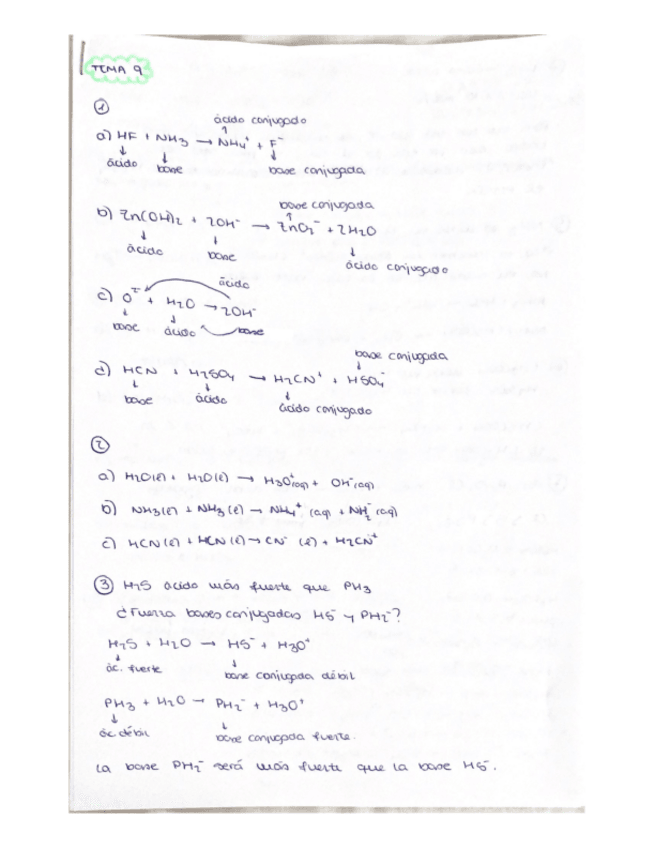 TEMA 9
①
ácido conjugado
a) HF + NH3 → NH4+ + F-
ácido base base conjugada
base conjugada
b) Zn(OH)2 + 2OH- → ZnO2- + 2H2O
ácido base ácido conjugado
ácido
c) O2- + H2O → 2OH-
base ácido base
base conjugada
d) HCN + H2SO4 → H2CN+ + HSO4-
base ácido ácido conjugado
②
a) H2O(l) + H2O(l) → H3O+(aq) + OH-(aq)
b) NH3(l) + NH3(l) → NH4+ (aq) + NH2-(aq)
c) HCN(l) + HCN(l) → CN- (l) + H2CN+
③ H2S ácido más fuerte que PH3
¿Fuerza bases conjugadas HS- y PH2-?
H2S + H2O → HS- + H3O+
ác. fuerte base conjugada débil
PH3 + H2O → PH2- + H3O+
ác débil base conjugada fuerte.
La base PH2- será más fuerte que la base HS-.